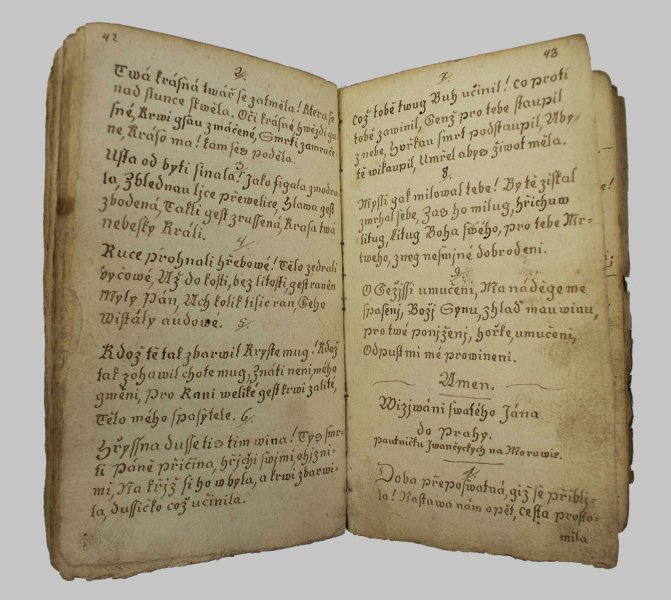 42
2.
Twá krásná twář se zatměla! ktera se
nad slunce skwěla. Oči krásné hwězdi ga-
sné, Krwi gsau zmáčené, Smrti zamrače-
ne, Kráso ma! kam ses poděla.
3.
Usta od byti sinala! Jako figala zmodra-
la, Zblednau ljce přewelice, Hlawa gest
zbodená, Takli gest zrussená, Krasa twá
nebesky Králi.
4.
Ruce prohnali hřebowé! Tělo zedrali
byčowé, Už do kosti, bez litosti, gest raněn
Myly Pán, Ach kolik tisic ran, Geho
wistály audowé.
5.
Kdož tě tak zbarwil Kryste mug! Kdož
tak zohawil chote mug, Znáti neni mého
gměni, Pro Rani weliké gest krwi zalité,
Tělo mého spasytele.
6.
Hřyssna dusse tis tim wina! Tys smr-
ti Páně přičina, hřjchi swjmi, ohjzni-
mi, Na křjž si ho wbyla, a krwi zbarwi-
la, dussičko což učinila.
43
7.
Což tobě twug Buh učinil! Co proti
tobě zawinil, Genž pro tebe staupil
z nebe, Hořkau smrt podstaupil, Aby-
tě wikaupil, Umřel abys žiwot měla.
8.
Mysli gak milowal tebe! By tě ziskal
zmrhal sebe, Zas ho milug, hřichuw
litug, Litug Boha swého, pro tebe Mr-
tweho, z neg nesmjné dobrodeni.
9.
O Gežjssi umučeni, Ma naděge me
spasenj, Božj Synu, zhlaď mau winu,
pro twé ponjženj, hořke, umučeni,
Odpust mi mé prowineni.
Amen.
Wizjwáni swatého Jána
do Prahy.
pautničku Jwančyckych na Morawie.
1.
Doba přeposwatná, giž se přibli-
la! Nastawa nám opět, cesta prosto-
mila